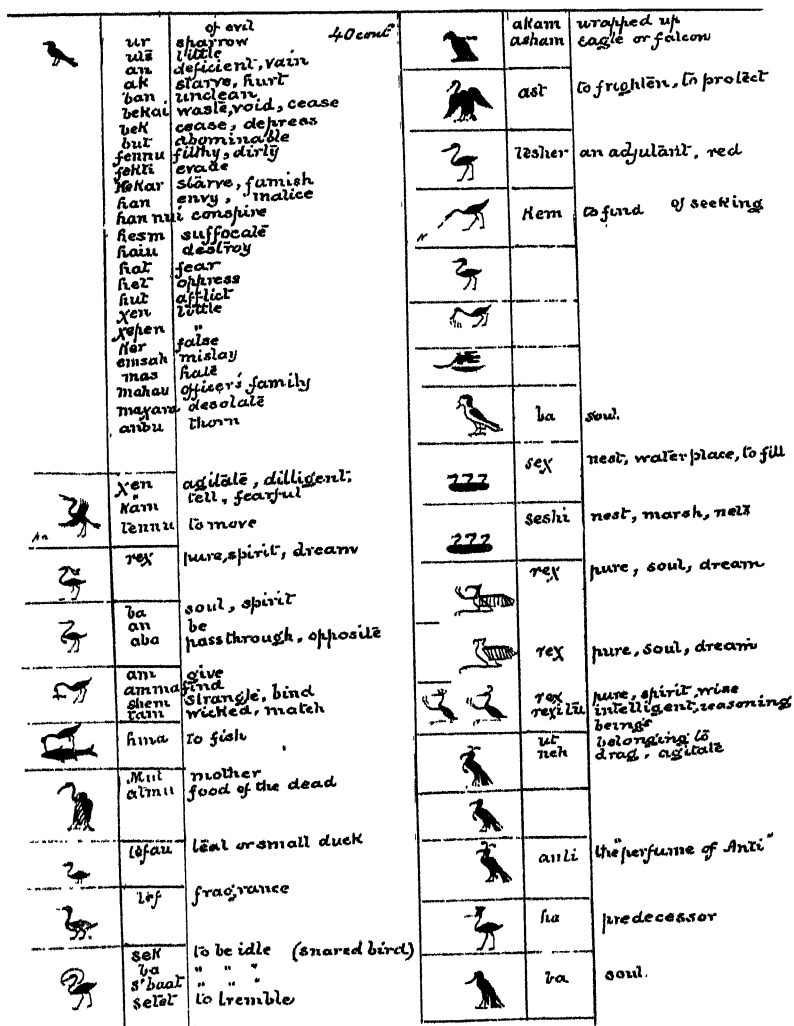 of evil 40 cont
ur sparrow
uts little
an deficient, vain
ak starve, hurt
ban unclean
bekai waste, void, cease
bek cease, depress
but abominable
fennu filthy, dirty
fekti evade
hekar starve, famish
han envy, malice
han nui conspire
hesm suffocate
haiu destroy
hat fear
het oppress
hut afflict
χen little
χepen "
Ker false
emsah mislay
mas hate
mahau officer's family
maχara desolate
anbu thorn
χen agitate, dilligent,
Kam tell, fearful
An
tennu to move
reχ pure, spirit, dream
ba soul, spirit
an be
aba pass through, opposite
am give
amma find
shem strangle, bind
tam wicked, match
hma to fish
Mut mother
atmu food of the dead
tefau teal or small duck
tef fragrance
sek to be idle (snared bird)
ba " " "
s'baat " " "
setet to tremble
akam wrapped up
asham Eagle or falcon
ast to frighten, to protect
tesher an adjutant, red
Kem to find of seeking
N
ba soul.
seχ nest, water place, to fill
seshi nest, marsh, nets
reχ pure, soul, dream
reχ pure, soul, dream
reχ pure, spirit, wise
reχitu intelligent, reasoning
beings
ut belonging to
neh drag, agitate
anti the "perfume of Anti"
ha predecessor
ba soul.